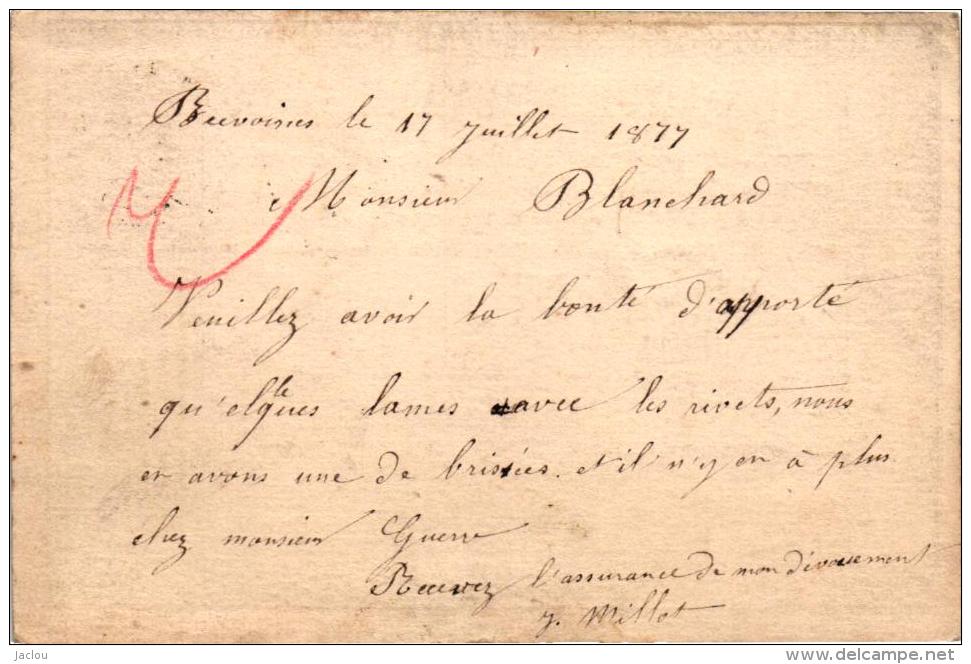 Beevoines le 17 Juillet 1877
Monsieur Blanchard
Veuillez avoir la bonté d'apporté
qu'elques lames avec les rivets, nous
en avons une de brisées. et il n'y en à plus
chez monsieur Guerre
Recevez l'assurance de mon dévouement
J. Millot
Jaclou
www.delcampe.net